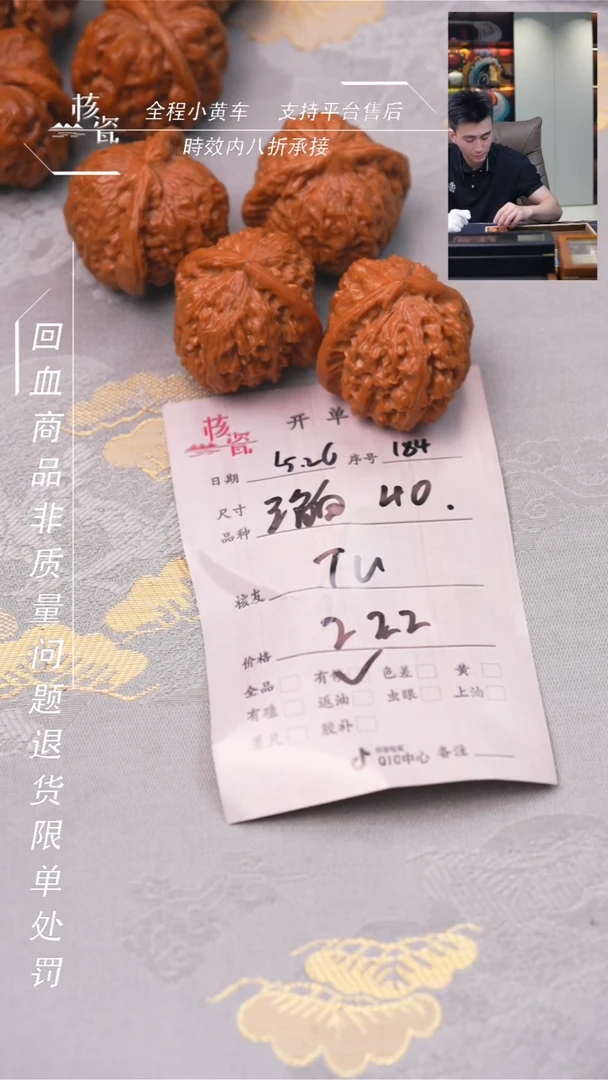 核瓷
全程小黄车 支持平台售后
時效内八折承接
回血商品非质量问题退货限单处罚
核瓷 开单
日期 5.26 序号 184
尺寸
品种 40.
核友 TU
价格 222
全品 有 色差 黄
有磕 返油 虫眼 上油
胶补
QIC中心 备注